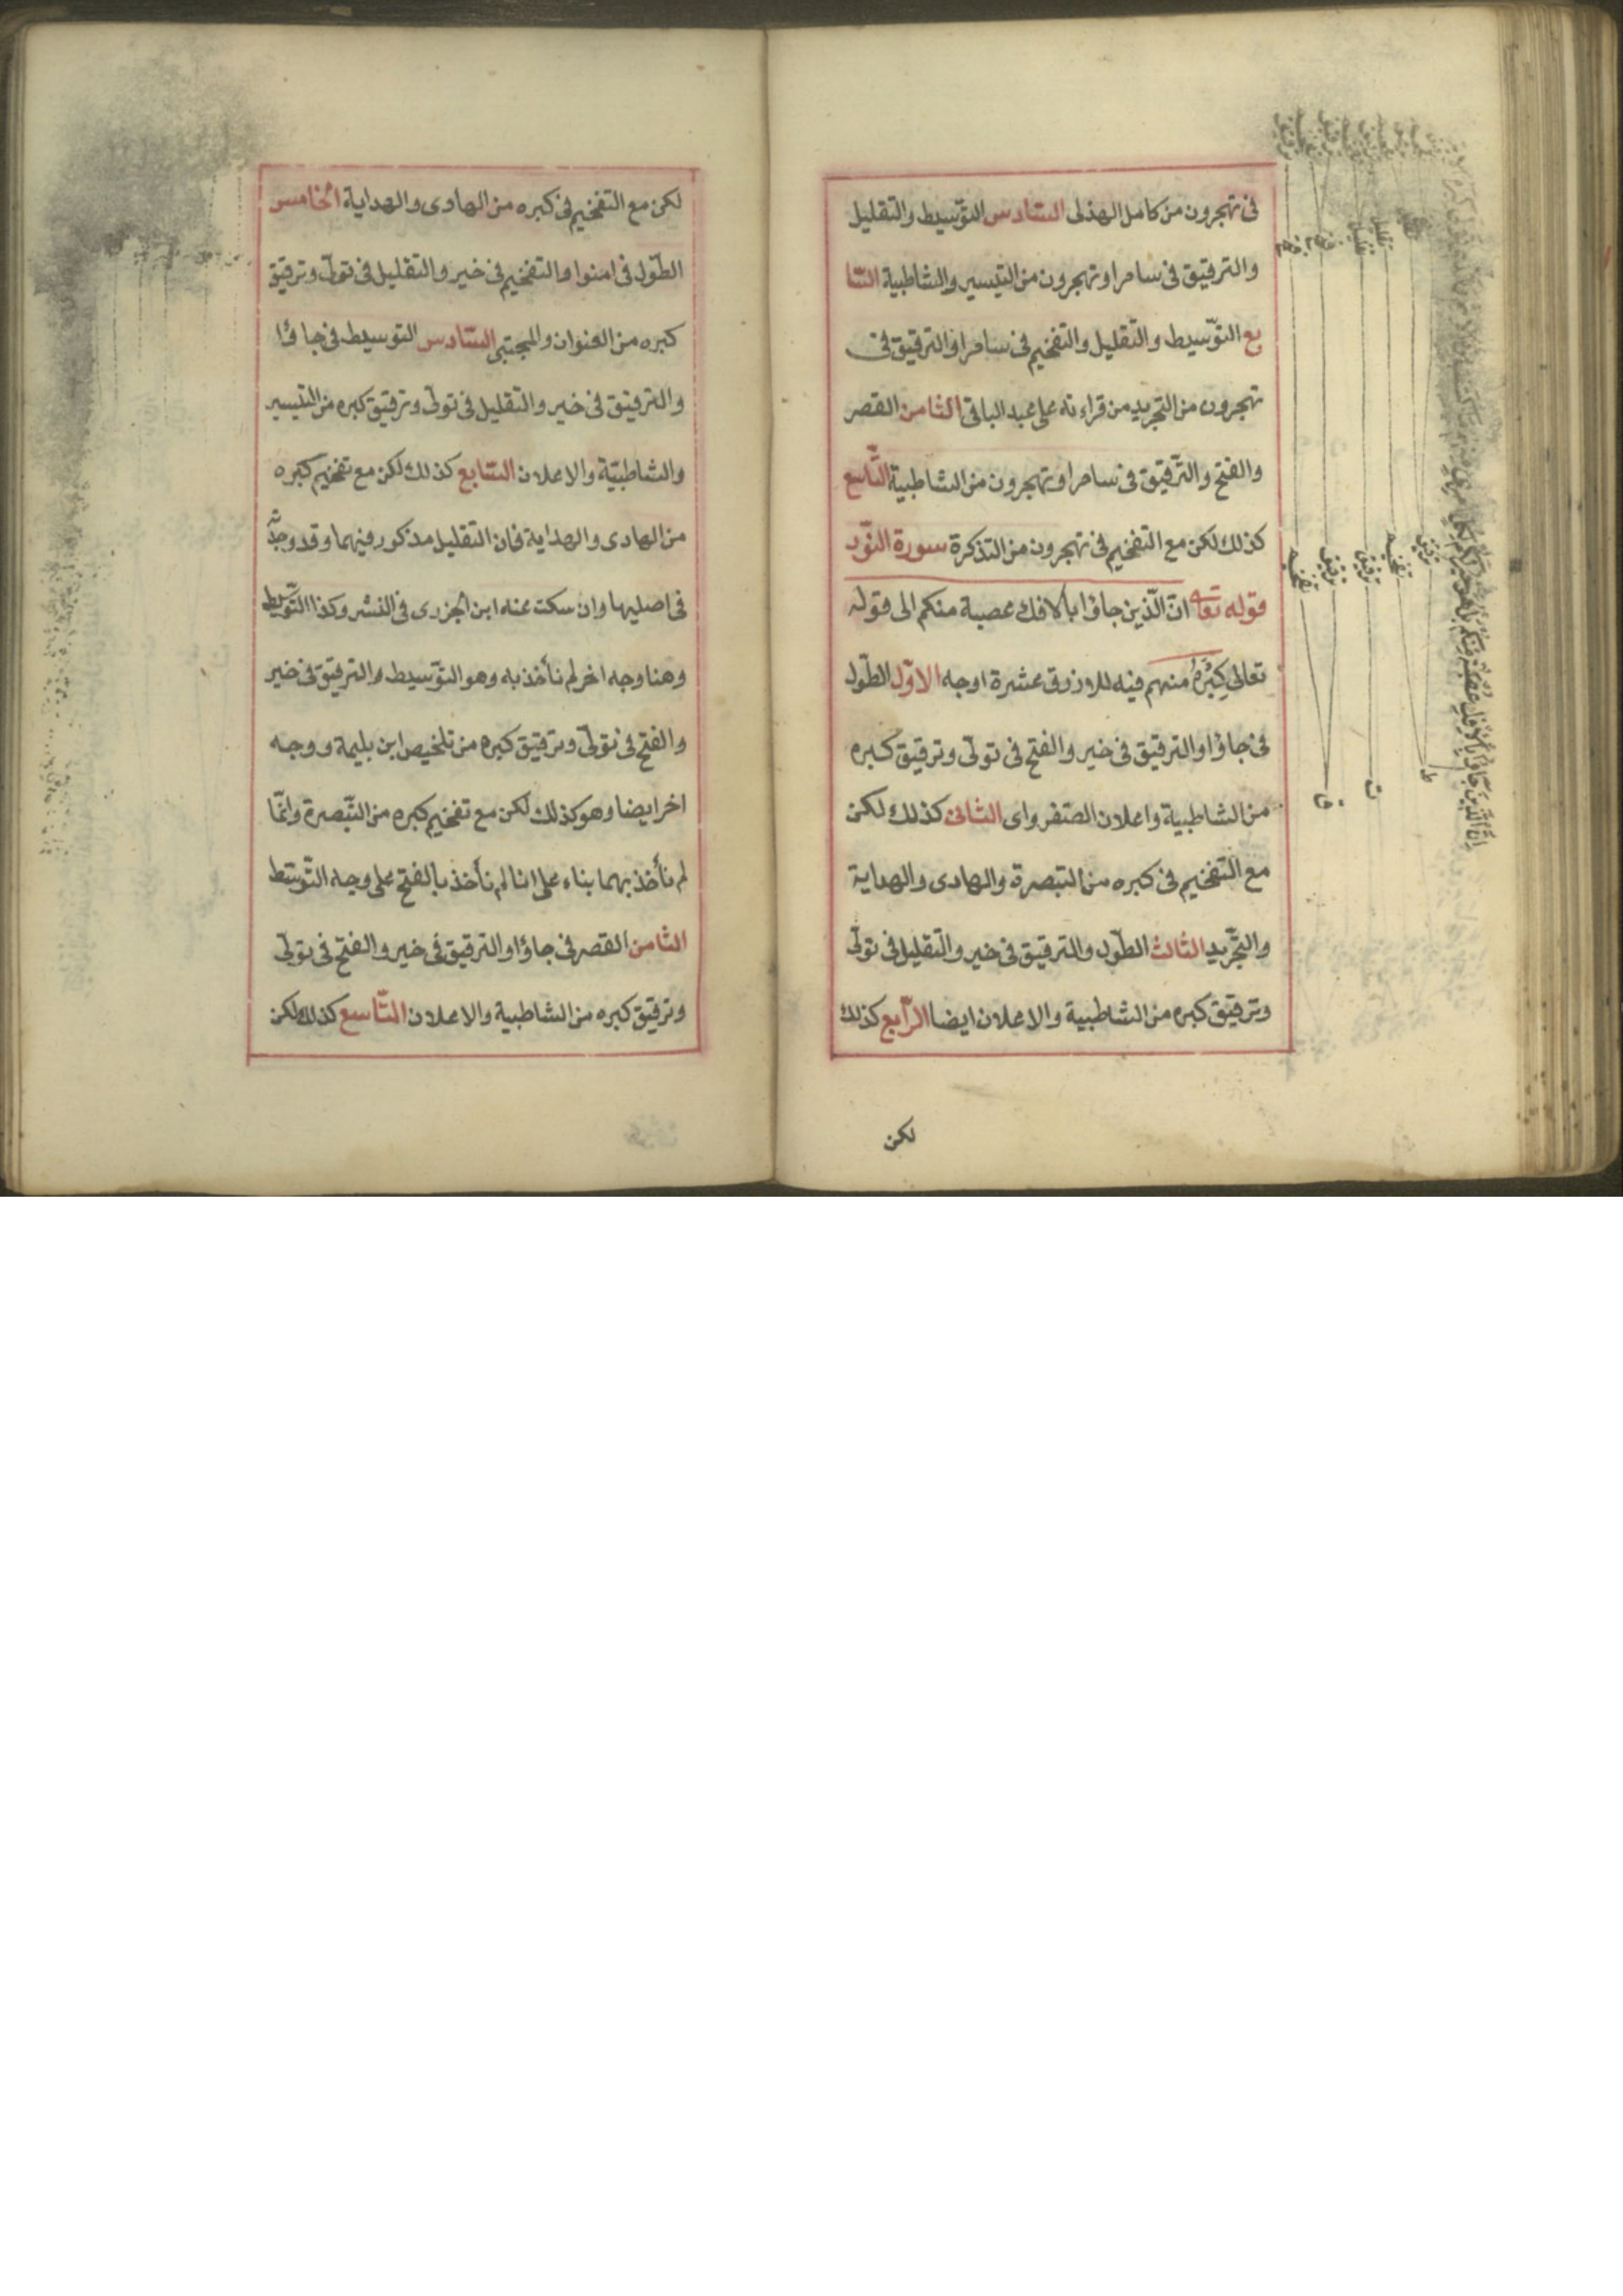 فى تهجرون من كامل الهذلى السّادس التوّسيط والتقليل
والترقيق فى سامرا وتهجرون من التيسير والشاطبية السّا
بع التوّسيط والتّقليل والتفخيم فى سامرا والترقيق فى
تهجرون من التجريد من قراءته على عبد الباقى الثامن القصر
والفتح والتّرقيق فى سامرا وتهجرون من الشاطبية التّاسع
كذلك لكن مع التفخيم فى تهجرون من التذكرة سورة النوّر
قوله تعالى انّ الّذين جاؤا بالافك عصبة منكم الى قوله
تعالى كِبْرَهُ منهم فيه للازرق عشرة اوجه الاوّل الطّول
فى جاؤا والترقيق فى خير والفتح فى تولّى وترقيق كبره
من الشاطبية واعلان الصّفراوى الثانى كذلك لكن
مع التّفخيم فى كبره من التبصرة والهادى والهداية
والتجّريد الثالث الطّول والترقيق فى خير والتّقليل فى تولّى
وترقيق كبره من الشاطبية والاعلان ايضا الرّابع كذلك
لكن
ترقيق
تفخيم
ترقيق
ترقيق
تفخيم
ط
ت
ق
اِنَّ الَّذِينَ جَاؤُا بِالْاِفْكِ عُصْبَةٌ مِنْكُمْ
لكن مع التفخيم فى كبره من الهادى والهداية الخامس
الطّول فى امنوا والتفخيم فى خير والتقليل فى تولّى وترقيق
كبره من العنوان والمجتبى السّادس التوسيط فى جاؤا
والترقيق فى خير والتقليل فى تولّى وترقيق كبره من التيسير
والشاطبيّة والاعلان السّابع كذلك لكن مع تفخيم كبره
من الهادى والهداية فان التّقليل مذكور فيهما وقد وجدّته
فى اصليهما وان سكت عنه ابن الجزرى فى النشر وكذا التوّسيط
وهنا وجه اخر لم نأخذ به وهو التوّسيط والترقيق فى خير
والفتح فى تولّى وترقيق كبره من تلخيص ابن بليمة ووجه
اخر ايضا وهو كذلك لكن مع تفخيم كبره من التّبصرة وانّما
لم نأخذ بهما بناء على انا لم نأخذ بالفتح على وجه التّوسّط
الثامن القصر فى جاؤا والترقيق فى خير والفتح فى تولّى
وترقيق كبره من الشاطبية والاعلان التّاسع كذلك لكن